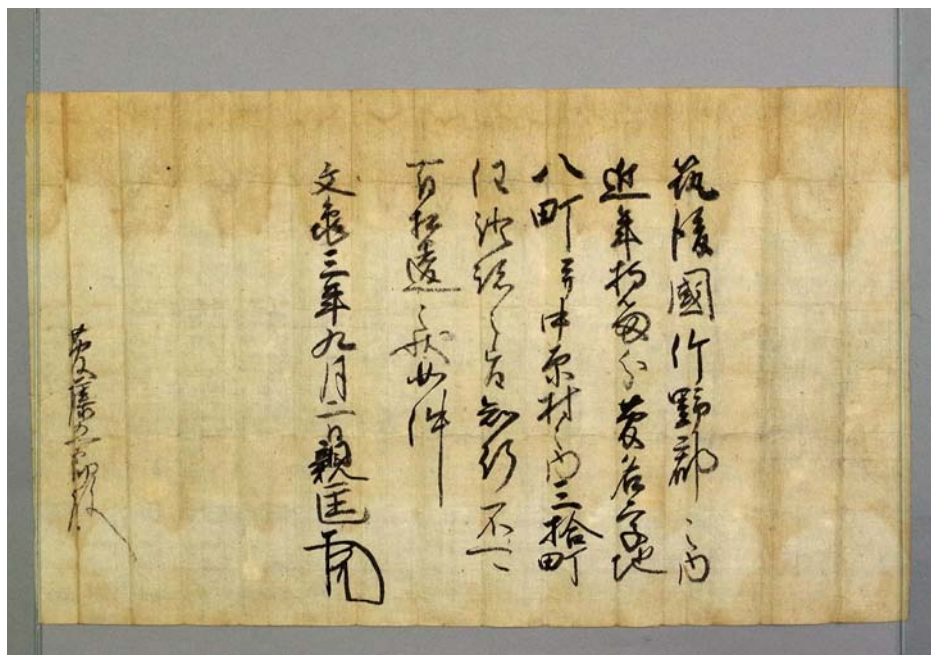 筑後國竹野郡之内
近年拘分菅名字地
八町并中原村之内三拾町
任御之旨知行不可
有相違之状如件
文亀三年九月二日親匡
藤殿